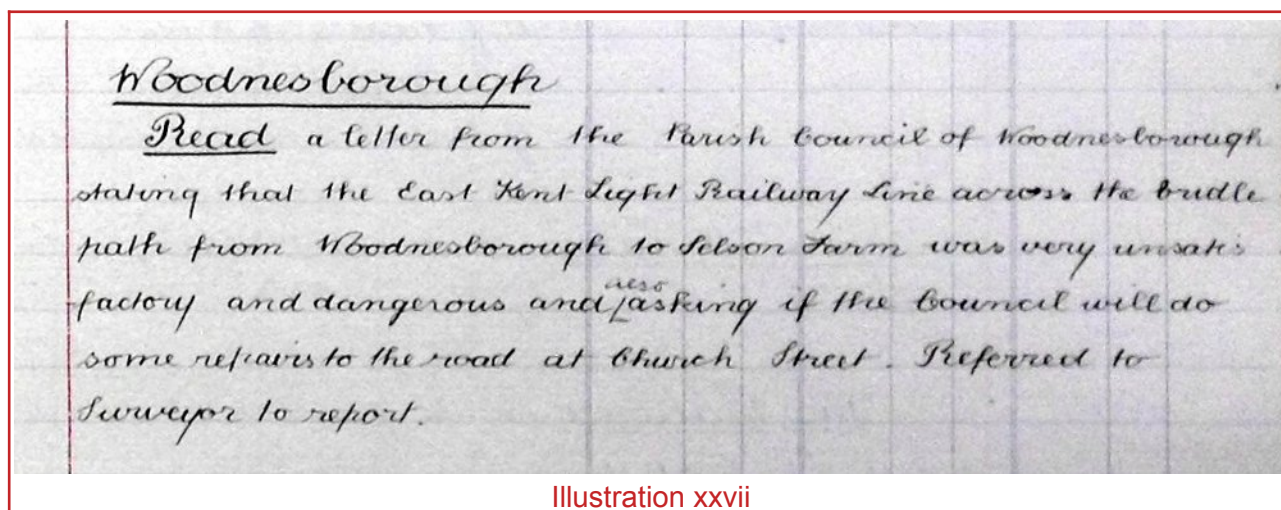 Woodnesborough
Read a letter from the Parish Council of Woodnesborough
stating that the East Kent Light Railway Line across the bridle
path from Woodnesborough to Selson Farm was very unsatis
factory and dangerous and also asking if the Council will do
some repairs to the road at Church Street. Referred to
Surveyor to report.
Illustration xxvii